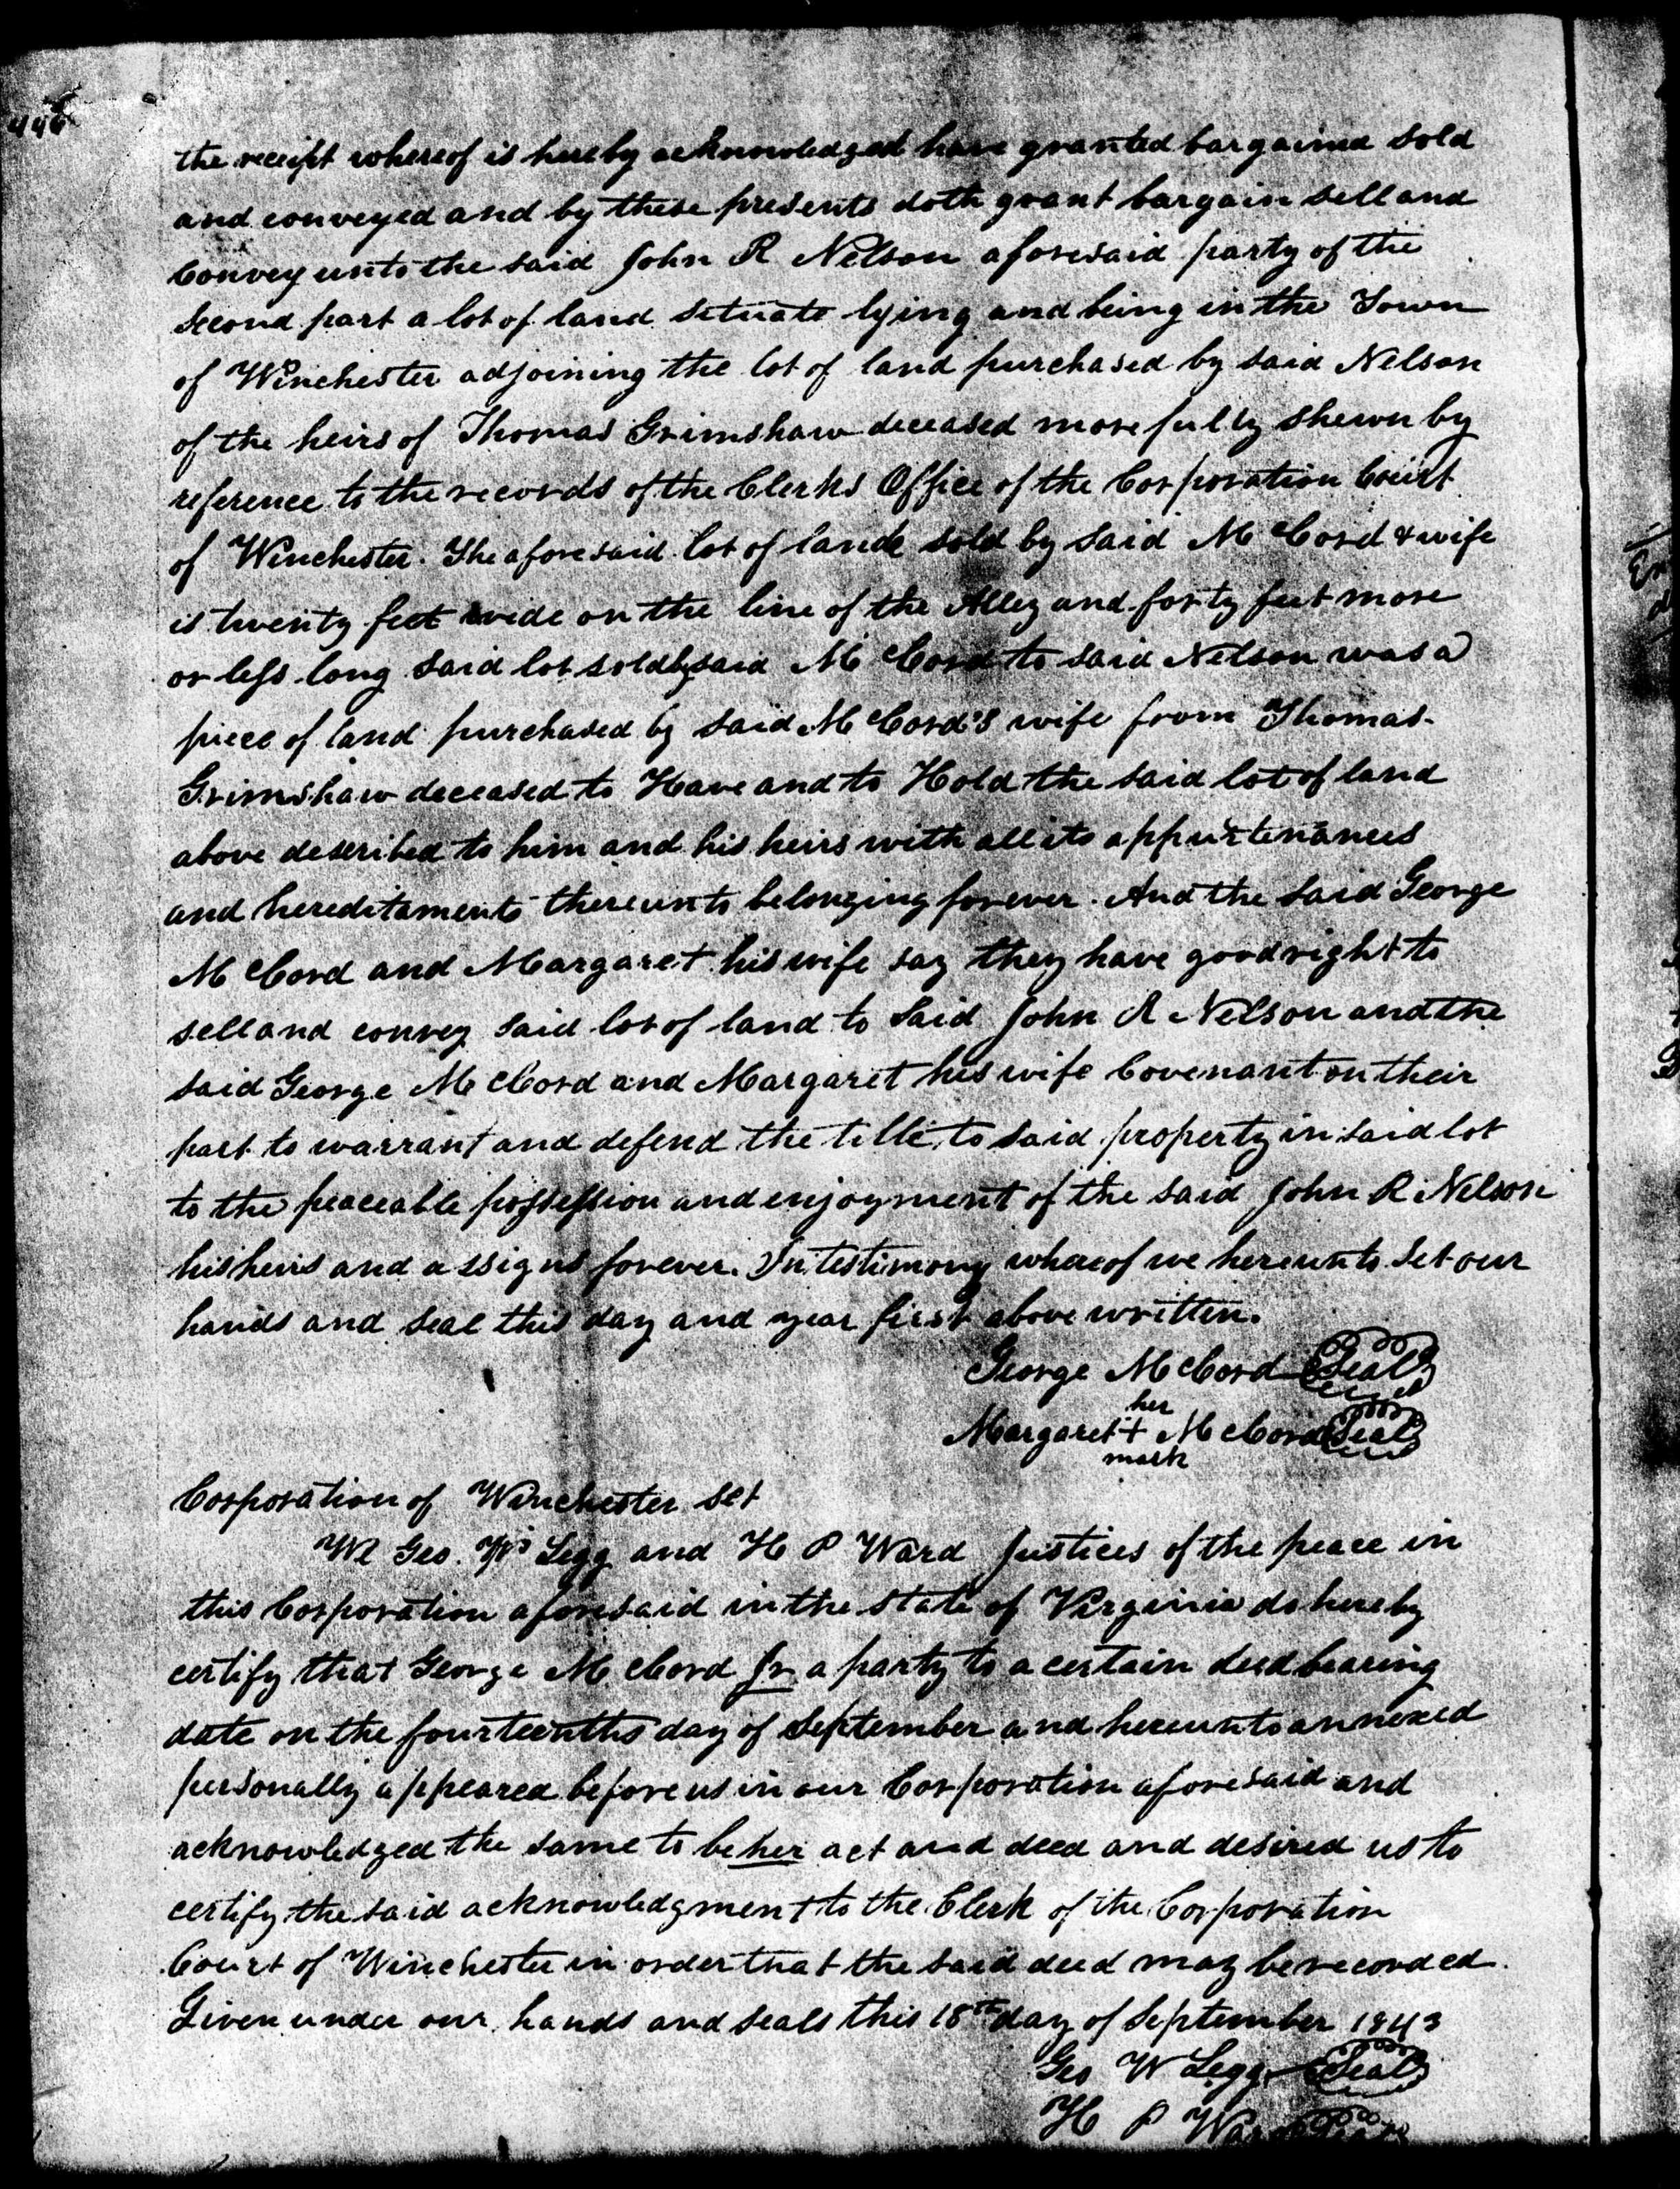 446
the receipt whereof is hereby acknowledged have granted bargained sold
and conveyed and by these presents doth grant bargain sell and
Convey unto the said John R Nelson aforesaid party of the
second part a lot of land situate lying and being in the Town
of Winchester adjoining the lot of land purchased by said Nelson
of the heirs of Thomas Grimshaw deceased more fully shewn by
reference to the records of the Clerks Office of the Corporation Court
of Winchester. The aforesaid lot of land sold by said McCord & wife
is twenty feet wide on the line of the Alley and forty feet more
or less long said lot sold by said McCord to said Nelson was a
piece of land purchased by said McCord's wife from Thomas
Grimshaw deceased to Have and to Hold the said lot of land
above described to him and his heirs with all its appurtenances
and hereditaments thereunto belonging forever. And the said George
McCord and Margaret his wife say they have good right to
sell and convey said lot of land to said John R Nelson and the
said George McCord and Margaret his wife Covenant on their
part to warrant and defend the title to said property in said lot
to the peaceable possession and enjoyment of the said John R Nelson
his heirs and assigns forever. In testimony whereof we hereunto Set our
hands and seal this day and year first above written.
George McCord Seal
her
Margaret + McCord Seal
mark
Corporation of Winchester Sct
We Geo. W Legg and H P Ward Justices of the peace in
this Corporation aforesaid in the state of Virginia do hereby
certify that George McCord Jr a party to a certain deed bearing
date on the fourteenths day of September and hereunto annexed
personally appeared before us in our Corporation aforesaid and
acknowledged the same to be her act and deed and desired us to
certify the said acknowledgment to the Clerk of the Corporation
Court of Winchester in order that the said deed may be recorded.
Given under our hands and seals this 18th day of September 1843
Geo W Legg Seal
H P Ward Seal